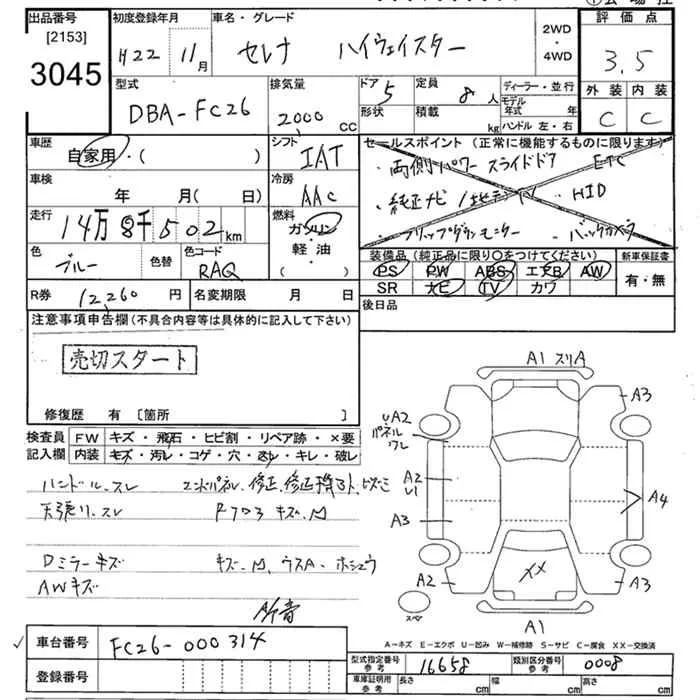 出品番号 初度登録年月 車名・グレード 2WD・4WD 評価点
[2153]
3045 H22 11月 セレナ ハイウェイスター 3.5
型式 排気量 ドア 定員 ディーラー・並行 外装 内装
DBA-FC26 2000 CC 5 8人 モデル年式 年 C C
形状 積載 kg ハンドル 左・右
車歴 シフト セールスポイント (正常に機能するものに限ります)
自家用・( ) IAT ・両側パワースライドドア ETC
車検 冷房 ・純正ナビ/地デジTV ・HID
年 月(日) AAC ・フリップダウンモニター ・バックカメラ
走行 燃料 装備品 (純正品に限り○をつけてください) 新車保証書
14万8千502km ガソリン・軽油 PS PW ABS エアB AW 有・無
色 色替 色コード SR ナビ TV カワ
ブルー RAQ
R券 12,260円 名変期限 月 日 後日品
注意事項申告欄 (不具合内容等は具体的に記入して下さい)
売切スタート
修復歴 有 [箇所 ]
検査員記入欄 FW キズ・飛石・ヒビ割・リペア跡・×要
内装 キズ・汚レ・コゲ・穴・スレ・キレ・破レ
ハンドル、スレ エンドパネル、修正、修正機アト、ヒズミ
天張リ、スレ Fフロア キズ、凹
Dミラーキズ キズ、凹、ウスA、ホシュウ
AWキズ
A1 スリA
A3
UA2
パネルワレ
A2
A4
A3
A2
XX
A3
スペア
A1
A-キズ E-エクボ U-凹み W-補修跡 S-サビ C-腐食 XX-交換済
車台番号 FC26-000314
型式指定番号 参考 16658 類別区分番号 参考 0008
登録番号 車庫証明用 参考 長さ cm 幅 cm 高さ cm